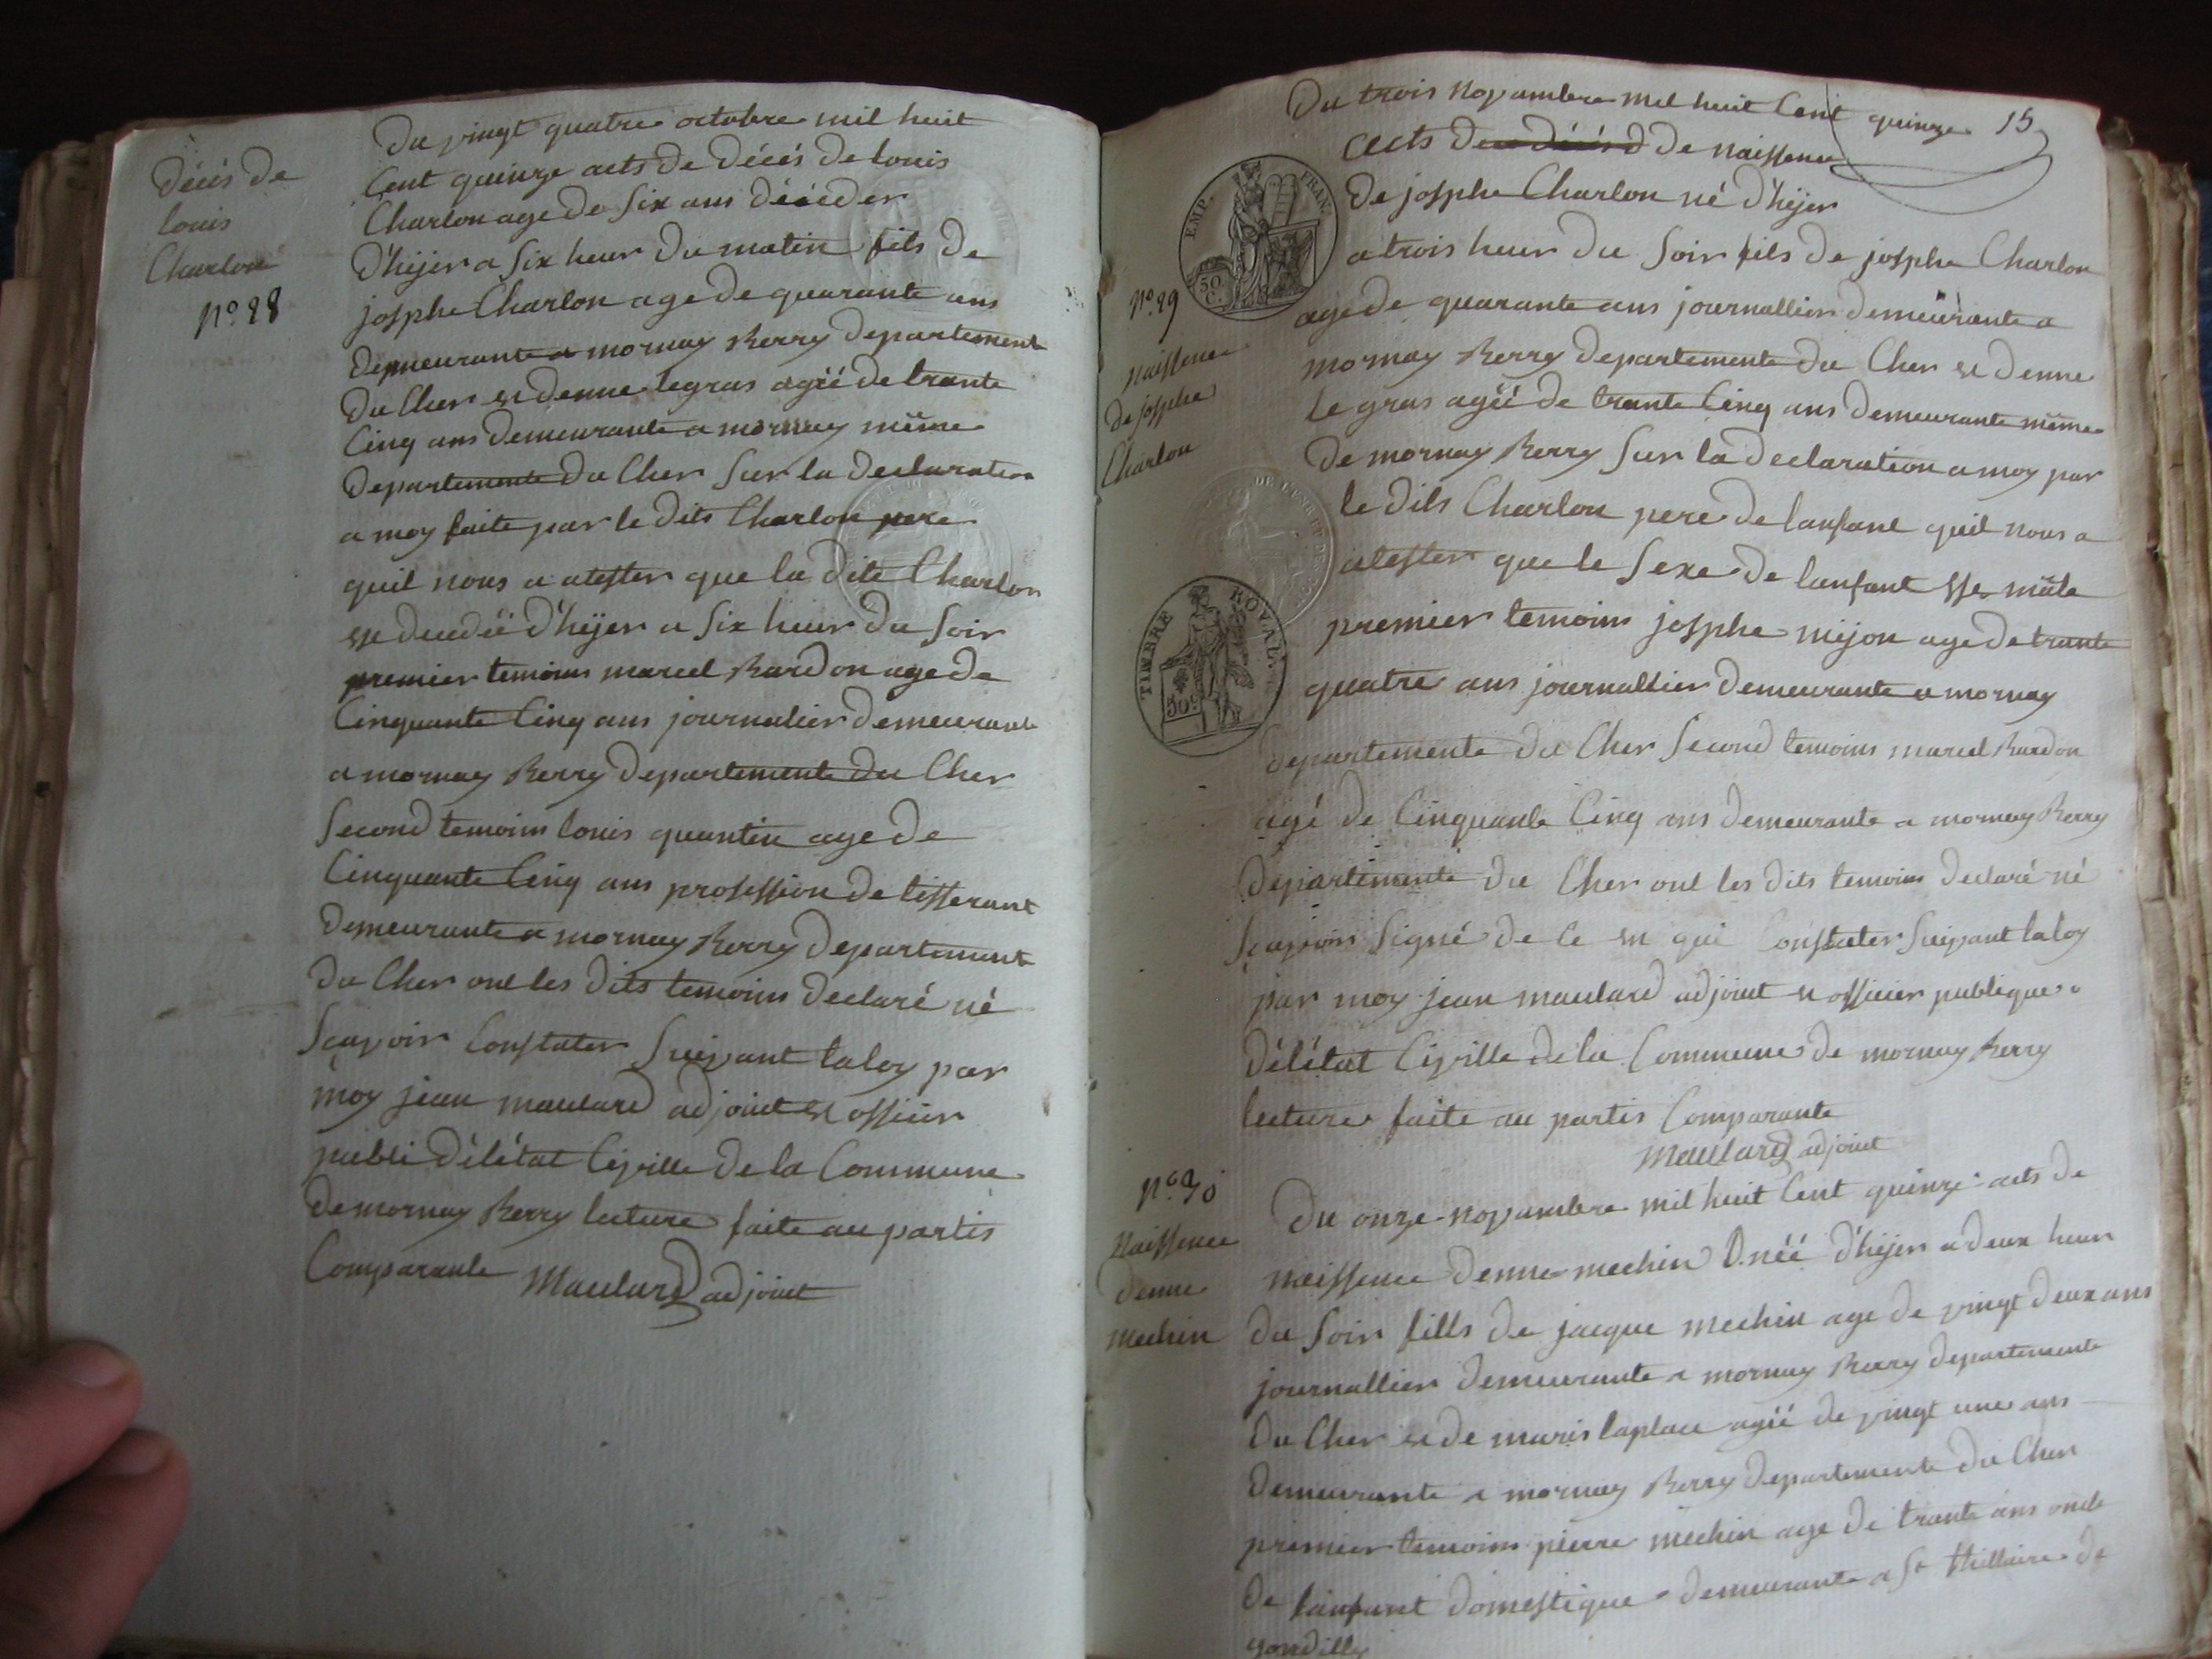 Décès de
louis
Charlon
N° 28
Du vingt quatre octobre mil huit
Cent quinze acts de Décés de louis
Charlon age de six ans Décéder
D'hijer a six heur du matin fils de
josphe Charlon age de quarante ans
Demeurante a mornay Berry departement
du Cher et denne legras agéé de trante
Cinq ans demeurante a mornay même
Departemente du Cher sur la declaration
a moy faite par le dits Charlon pere
quil nous a atester que la dite Charlon
est decedéé D'hijer a six heur du soir
premier temoins marcel Bardon age de
Cinquante Cinq ans journalier demeurante
a mornay Berry departemente du Cher
Second temoins louis quantin age de
Cinquante Cinq ans profession de tisserant
Demeurante a mornay Berry departement
du Cher ont les dits temoins declaré né
sçavoir Constater suivant la loy par
moy jean maulard adjoint et officier
publi d'élétat Civille de la Commune
de mornay Berry lecture faite au partis
Comparante Maulard adjoint
15
Du trois novambre mil huit Cent quinze
acts de naissence
de josphe Charlon né d'hijer
a trois heur du soir fils de josphe Charlon
age de quarante ans journallier demeurante a
mornay Berry departemente du Cher et denne
le gras agéé de trante Cinq ans demeurante même
de mornay Berry sur la declaration a moy par
le dits Charlon pere de lanfant quil nous a
atester que le sexe de lanfant est mâle
premier temoins josphe mijon age de trante
quatre ans journallier demeurante a mornay
departemente du Cher second temoins marcel Bardon
agé de Cinquante Cinq ans demeurante a mornay Berry
departemente du Cher ont les dits temoins declaré né
sçavoir signé de ce en qui Constater suivant la loy
par moy jean maulard adjoint et officier publique
d'élétat Civille de la Commune de mornay Berry
lecture faite au partis Comparante
Maulard adjoint
EMP. FRAN.
50 C.
N° 29
naissence
de josphe
Charlon
TIMBRE ROYAL
50 c
N° 30
Naissence
denne
mechin
Du onze novambre mil huit Cent quinze acts de
naissence denne mechin néé d'hijer a deux heur
du soir fills de jacque mechin age de vingt deux ans
journallier demeurante a mornay Berry departemente
du Cher et de maris laplace agéé de vingt une ans
demeurante a mornay Berry departemente du Cher
premier temoins pierre mechin age de trante ans oncle
de lanfant domestique demeurante a St hillaire de
gondilly